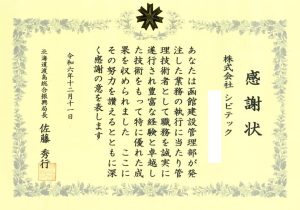 感謝状
株式会社 シビテック
あなたは函館建設管理部が発
注した業務の執行に当たり管
理技術者として職務を誠実に
遂行され豊富な経験と卓越し
た技術をもって特に優れた成
果を収められました ここに
その努力を讃えるとともに深
く感謝の意を表します
令和六年十二月十一日
北海道渡島総合振興局長 佐藤 秀行